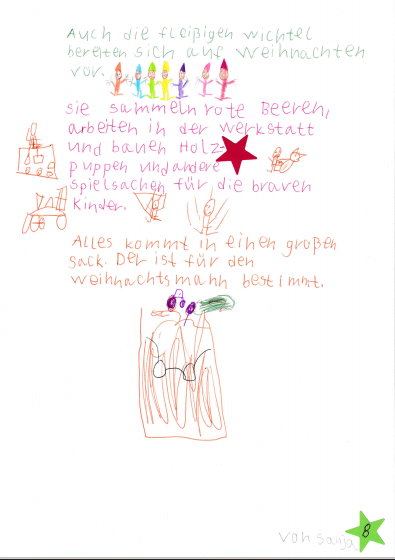 Auch die fleißigen wichtel
bereiten sich auf Weihnachten
vor.
sie sammeln rote Beeren,
arbeiten in der werkstatt
und bauen Holz-
puppen und andere
spielsachen für die braven
Kinder.
Alles kommt in einen großen
sack. Der ist für den
weihnachtsmann bestimmt.
8
von